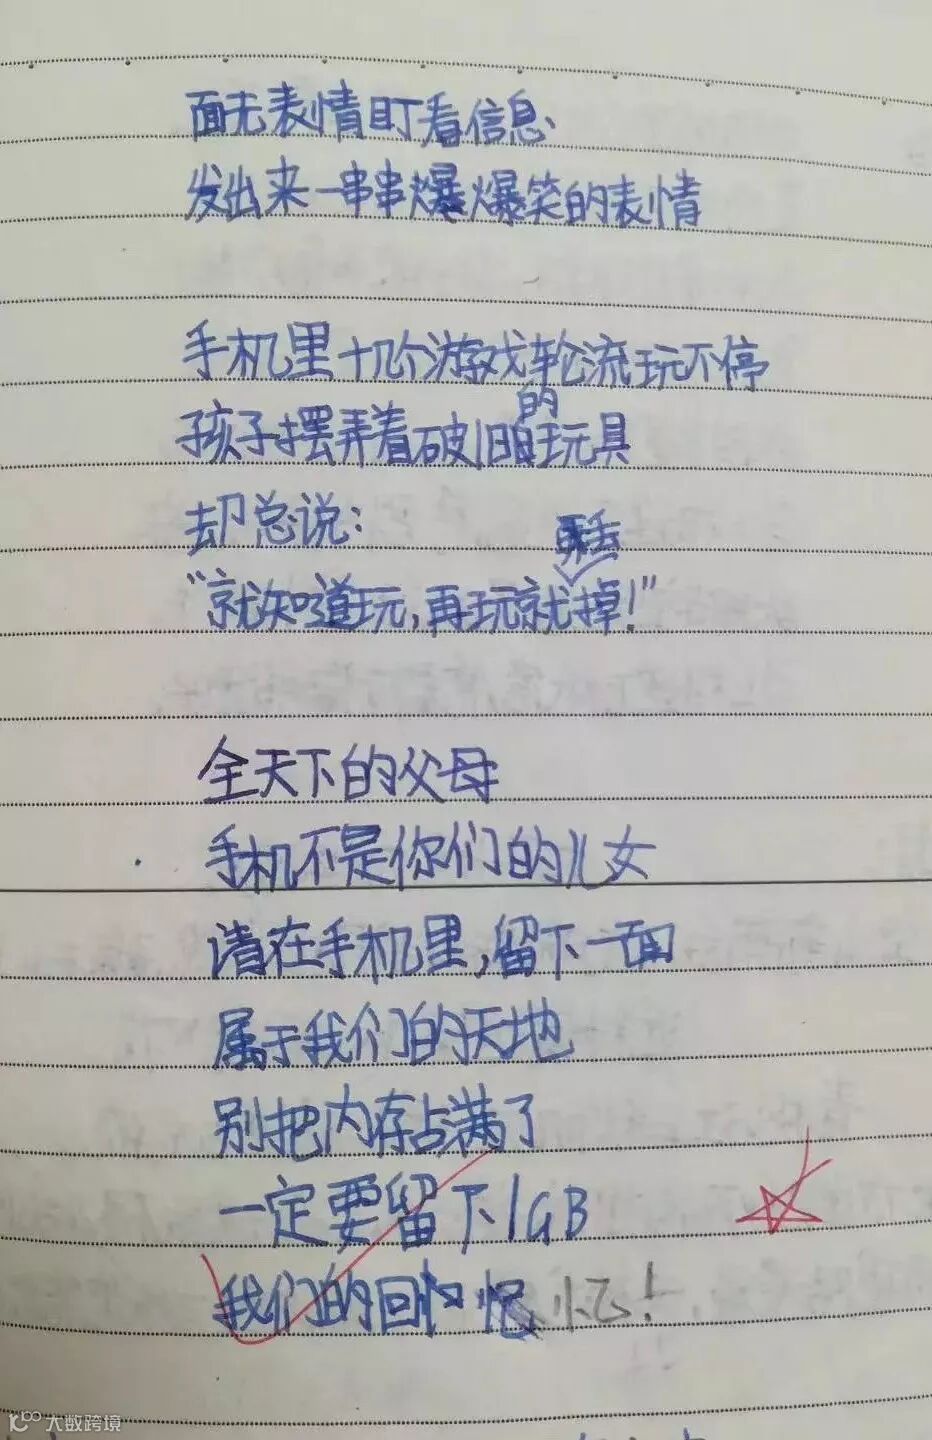 面无表情盯着信息
发出来一串串爆爆笑的表情
手机里十几个游戏轮流玩不停
孩子摆弄着破旧的玩具
却总说：
“就知道玩，再玩就丢掉！”
全天下的父母
手机不是你们的儿女
请在手机里，留下一面
属于我们的天地
别把内存占满了
一定要留下1GB
我们的回忆！
大数跨境